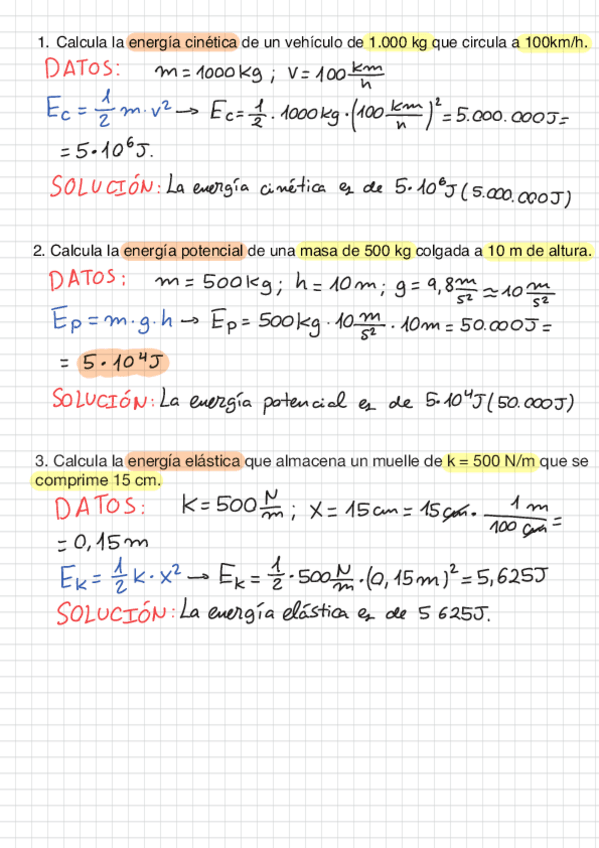 1. Calcula la energía cinética de un vehículo de 1.000 kg que circula a 100km/h.
DATOS: m = 1000 kg ; v = 100 km/h
Ec = 1/2 m · v² → Ec = 1/2 · 1000 kg · (100 km/h)² = 5.000.000J =
= 5·10⁶J.
SOLUCIÓN: La energía cinética es de 5·10⁶J (5.000.000J)
2. Calcula la energía potencial de una masa de 500 kg colgada a 10 m de altura.
DATOS: m = 500kg; h = 10m; g = 9,8 m/s² ≈ 10 m/s²
Ep = m·g·h → Ep = 500kg · 10 m/s² · 10m = 50.000J =
= 5·10⁴J
SOLUCIÓN: La energía potencial es de 5·10⁴J (50.000J)
3. Calcula la energía elástica que almacena un muelle de k = 500 N/m que se
comprime 15 cm.
DATOS: K = 500 N/m ; x = 15cm = 15cm · 1 m/100 cm =
= 0,15m
Ek = 1/2 k · x² → Ek = 1/2 · 500 N/m · (0,15m)² = 5,625J
SOLUCIÓN: La energía elástica es de 5 625J.